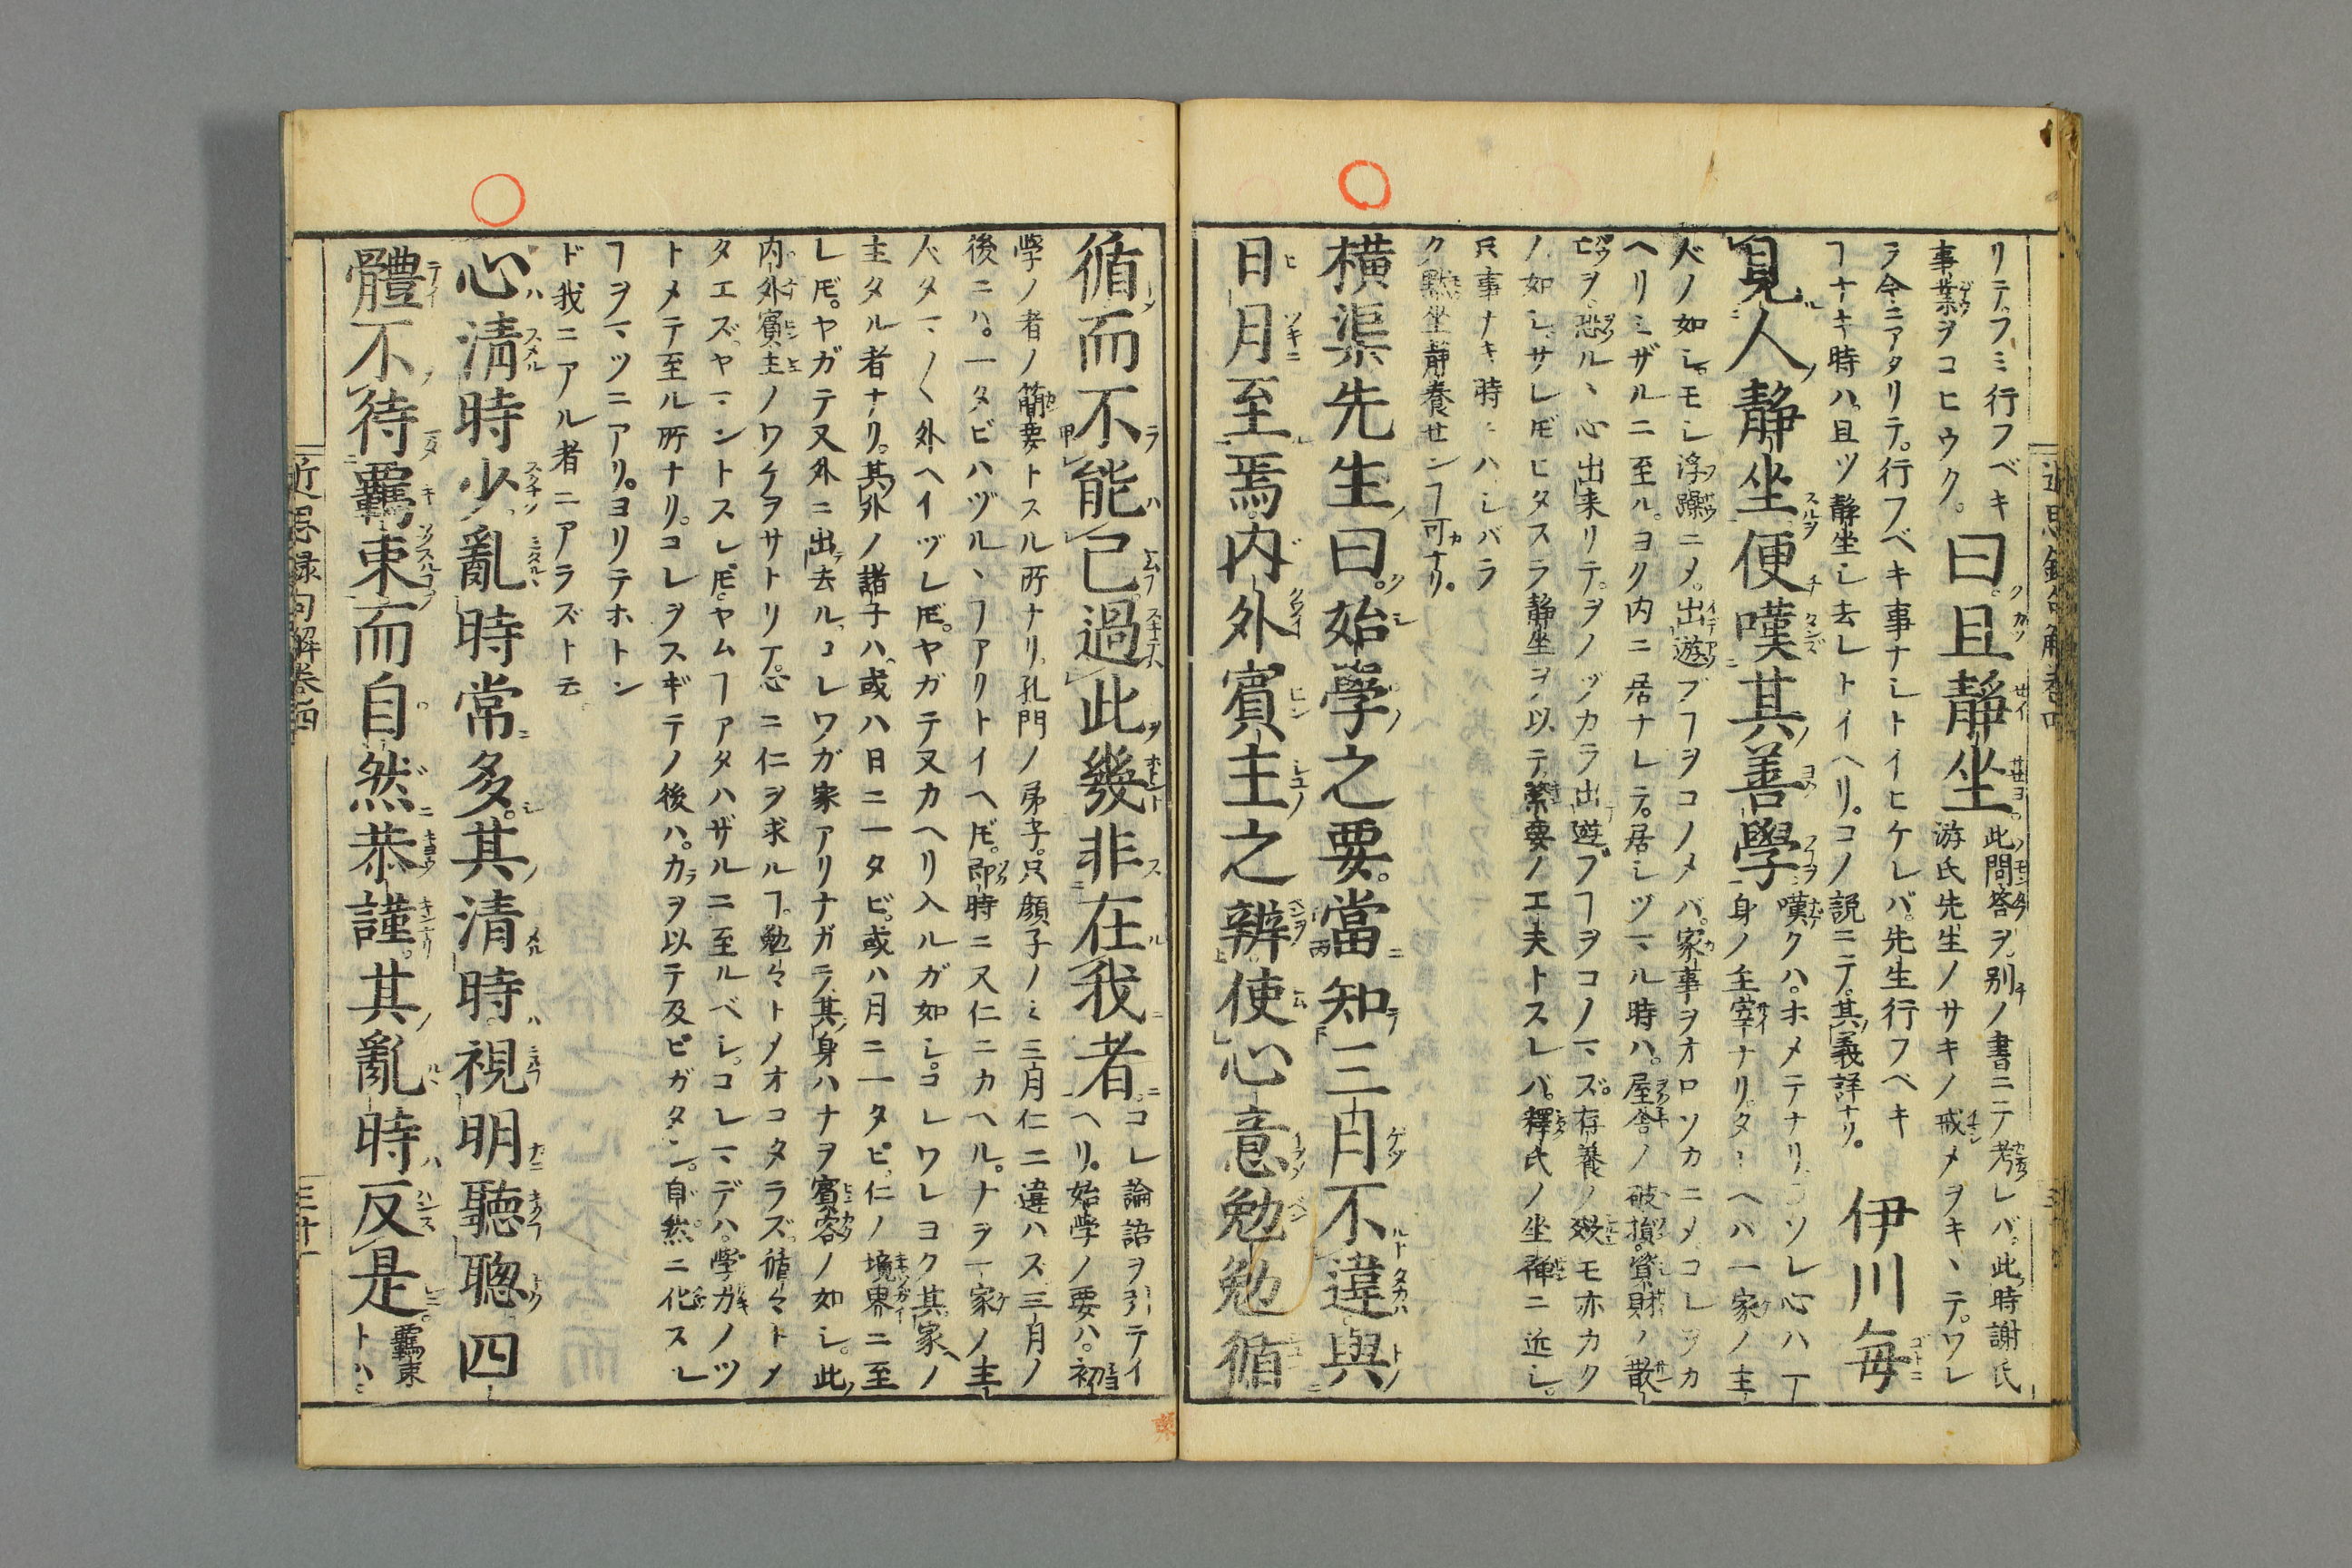 リテ、フミ行フベキ
事業ヲコヒウク。曰。且靜坐。此問答ヲ別ノ書ニテ考レバ。此時謝氏
游氏先生ノサキノ戒メヲキヽテ。ワレ
ラ今ニアタリテ。行フベキ事ナシトイヒケレバ。先生行フベキ
ヿナキ時ハ。且ツ靜坐シ去レトイヘリ。コノ説ニテ。其義詳ナリ。伊川每
見人靜坐便嘆其善學嘆クハ。ホメテナリ。ソレ心ハ一
身ノ主宰ナリ。タトヘハ一家ノ主
人ノ如シ。モシ浮躁ニメ。出遊ブヿヲコノメバ。家事ヲオロソカニメ。コレヲカ
ヘリミザルニ至ル。ヨク内ニ居ナレテ。居シヅマル時ハ。屋舎ノ破損。資財ノ散
亡ヲ。恐ルヽ心出來リテ。ヲノヅカラ出遊ブヿヲコノマズ。存養ノ效モ亦カク
ノ如シ。サレ𪜈ヒタスラ靜坐ヲ以テ。緊要ノ工夫トスレバ。釋氏ノ坐禪ニ近シ。
只事ナキ時ニハ。シバラ
ク默坐靜養センヿ可ナリ。
橫渠先生曰。始學之要。當知三月不違與
日月至焉内外賓主之辨使心意勉勉循
循而不能已過此幾非在我者コレ論語ヲ引テイ
ヘリ。始學ノ要ハ。初
學ノ者ノ簡要トスル所ナリ。孔門ノ弟子。只顔子ノミ三月仁ニ違ハス三月ノ
後ニハ。一タビハヅルヽヿアリトイヘ𪜈。即時ニ又仁ニカヘル。ナラ一家ノ主
人タマ〱外ヘイヅレ𪜈。ヤガテ又カヘリ入ルガ如シ。コレワレヨク其家ノ
主タル者ナリ。其外ノ諸子ハ。或ハ日ニ一タビ。或ハ月ニ一タビ。仁ノ境界ニ至
レ𪜈。ヤガテ又外ニ出去ル。コレワガ家アリナガラ。其身ハナヲ賓客ノ如シ。此
内外賓主ノワケヲサトリテ。心ニ仁ヲ求ルヿ。勉々トメオコタラズ。循々トメ
タエズ。ヤマントスレ𪜈。ヤムヿアタハザルニ至ルベシ。コレマデハ。學力ノツ
トメテ至ル所ナリ。コレヲスギテノ後ハ。力ヲ以テ及ビガタシ。自然ニ化スレ
ヿヲマツニアリ。ヨリテホトン
ド我ニアル者ニアラズト云。
心清時少。亂時常多。其清時。視明聽聰。四
體不待羈束而自然恭謹。其亂時反是。羈束
トハ
近思録句解卷四
三十一